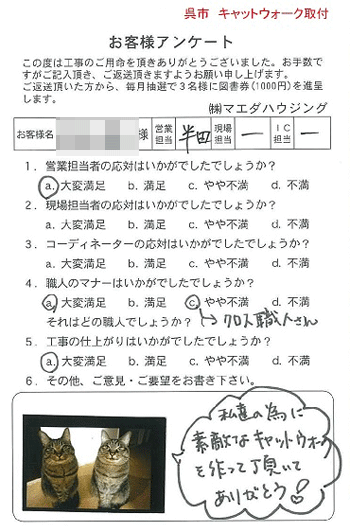 呉市 キャットウォーク取付
お客様アンケート
この度は工事のご用命を頂きありがとうございました。お手数で
すがご記入頂き、ご返送頂きますようお願い申し上げます。
ご返送頂いた方から、毎月抽選で3名様に図書券(1000円)を進呈
します。
㈱マエダハウジング
お客様名 様 営業担当 半田 現場担当 ー IC担当 ー
1．営業担当者の応対はいかがでしたでしょうか？
a. 大変満足 b. 満足 c. やや不満 d. 不満
2．現場担当者の応対はいかがでしたでしょうか？
a. 大変満足 b. 満足 c. やや不満 d. 不満
3．コーディネーターの応対はいかがでしたでしょうか？
a. 大変満足 b. 満足 c. やや不満 d. 不満
4．職人のマナーはいかがでしたでしょうか？
a. 大変満足 b. 満足 c. やや不満 d. 不満
それはどの職人でしょうか？ →クロス職人さん
5．工事の仕上がりはいかがでしたでしょうか？
a. 大変満足 b. 満足 c. やや不満 d. 不満
6．その他、ご意見・ご要望をお書き下さい。
私達の為に
素敵なキャットウォーク
を作って頂いて
ありがとう